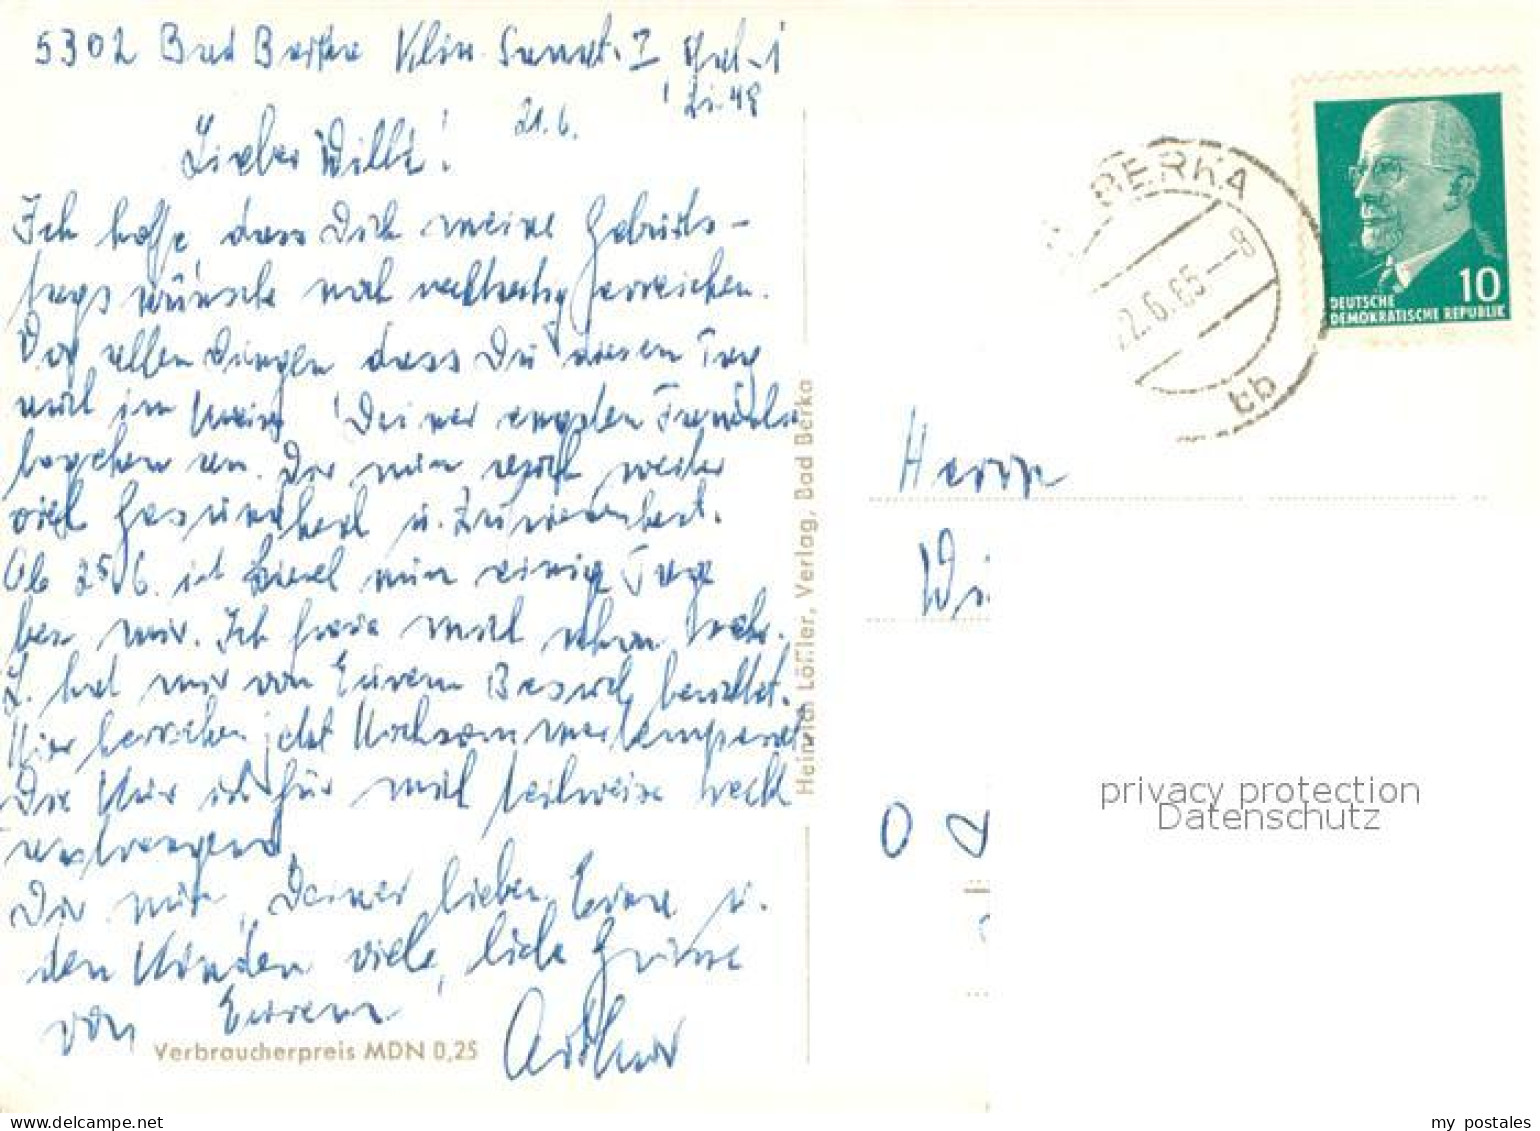 5302 Bad Berka Klin. Sanat. I,
Zi. 48
21. 6.
Lieber Willi!
Ich hoffe, dass Dich meine Geburts-
tags wünsche noch rechtzeitig erreichen.
Vor allen Dingen dass Du diesen Tag
im Kreis Deiner
Dir nun weiter
viel Gesundheit u. Zufriedenheit.
Ab 25. 6. ist nun einige Tage
bei mir. Ich freue mich schon sehr.
L. hat mir von Eurem Besuch berichtet.
Hier herrschen jetzt Hochsommertemperat.
Die Kur ist für mich teilweise recht
anstrengend.
Dir nun, Deiner lieben u.
den Kindern viele, liebe Grüsse
von Eurem
Arthur
Verbraucherpreis MDN 0,25
Heinrich Löffler, Verlag, Bad Berka
BERKA
22.6.65-8
tb
DEUTSCHE
DEMOKRATISCHE REPUBLIK
10
Herrn
Wi
privacy protection
Datenschutz
my_postales